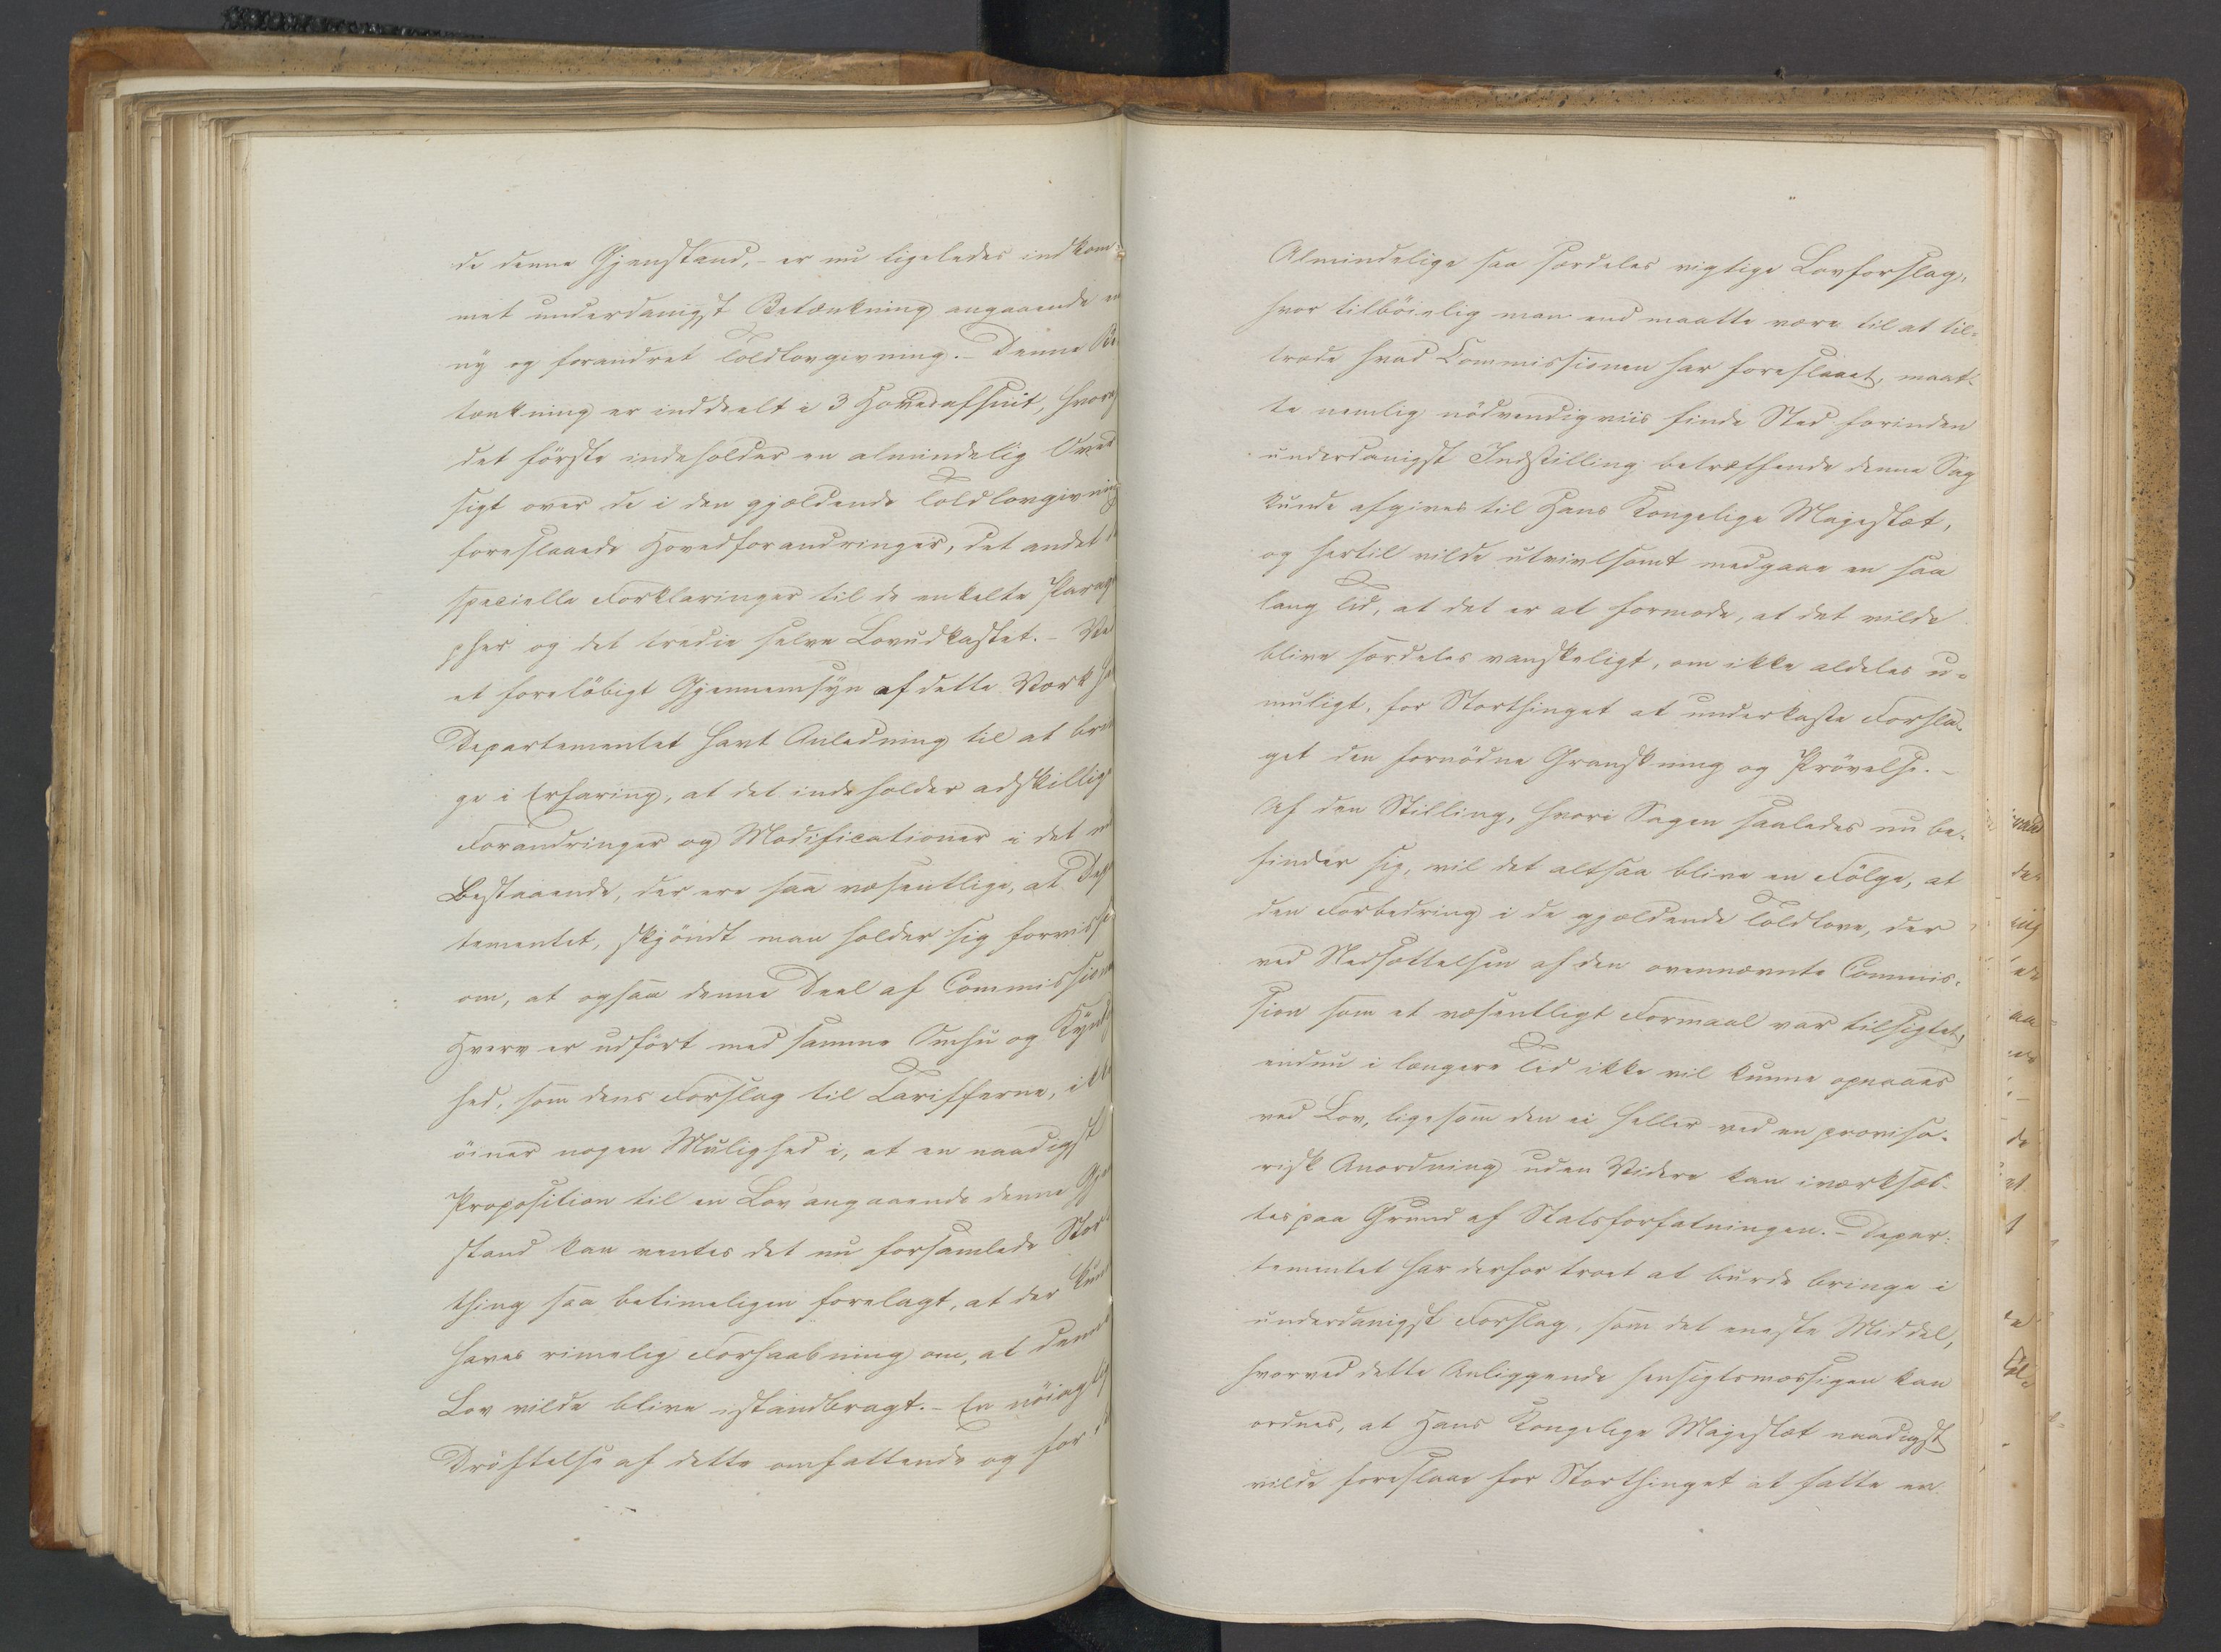 de denne Gjenstand, – er nu ligeledes indkom-
met underdanigst Betænkning angaaende en
ny og forandret Toldlovgivning. – Denne Be
tænkning er inddeelt i 3 Hovedafsnit, hvoraf
det første indeholder en almindelig Over
sigt over de i den gjældende Toldlovgivning
foreslaaede Hovedforandringer, det andet
specielle Forklaringer til de enkelte Paragra
pher og det tredie selve Lovudkastet. – Ved
et foreløbigt Gjennemsyn af dette Værk har
Departementet havt Anledning til at brin
ge i Erfaring, at det indeholder adskillige
Forandringer og Modificationer i det nu
Bestaaende, der ere saa væsentlige, at Depar
tementet, skjøndt man holder sig forvisset
om, at ogsaa denne Deel af Commissionens
Hverv er udført med samme Omhu og Kyndig
hed, som dens Forslag til Tarifferne, ikke
øiner nogen Mulighed i, at en naadigst
Proposition til en Lov angaaende denne Gjen
stand kan ventes det nu forsamlede Stor
thing saa betimeligen forelagt, at der kunde
haves rimelig Forhaabning om, at denne
Lov vilde blive istandbragt. – En nøiagtig
Drøftelse af dette omfattende og for
Almindelige saa særdeles vigtige Lovforslag,
hvor tilbøielig man end maatte være til at til-
træde hvad Commissionen har foreslaaet, maat-
te nemlig nødvendigviis finde Sted forinden
underdanigst Indstilling betræffende denne Sag
kunde afgives til Hans Kongelige Majestæt,
og hertil vilde utvivlsomt medgaae en saa
lang Tid, at det er at formode, at det vilde
blive særdeles vanskeligt, om ikke aldeles u-
muligt, for Storthinget at underkaste Forsla-
get den fornødne Granskning og Prøvelse. –
Af den Stilling, hvori Sagen saaledes nu be-
finder sig, vil det altsaa blive en Følge, at
den Forbedring i de gjældende Toldlove, der
ved Nedsættelsen af den ovennævnte Commis-
sion som et væsentligt Formaal var tilsigtet,
endnu i længere Tid ikke vil kunne opnaaes
ved Lov, ligesom den ei heller ved en proviso-
risk Anordning uden Videre kan iværksæt-
tes paa Grund af Statsforfatningen. – Depar-
tementet har derfor troet at burde bringe i
underdanigst Forslag, som det eneste Middel,
hvorved dette Anliggende hensigtsmæssigen kan
ordnes, at Hans Kongelige Majestæt naadigst
vilde foreslaae for Storthinget at fatte en